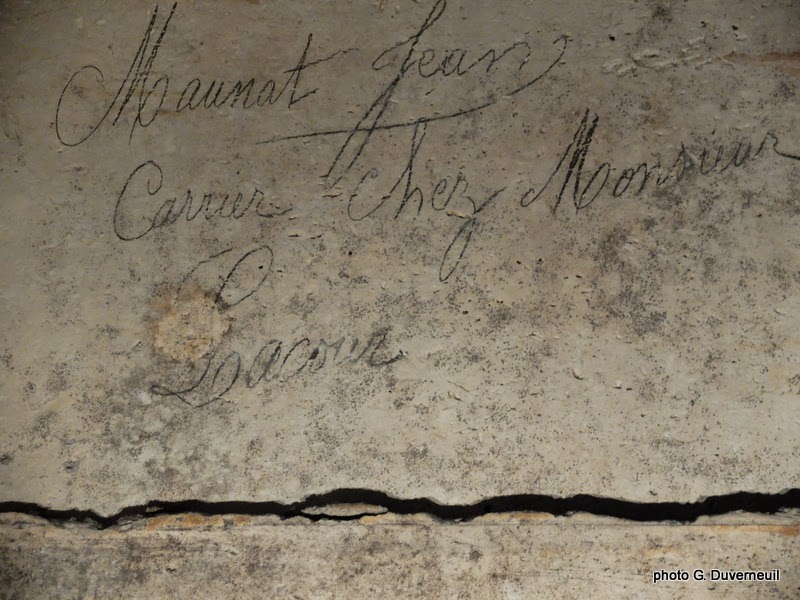 Maunat Jean
Carrier chez Monsieur
Lacour
photo G. Duverneuil